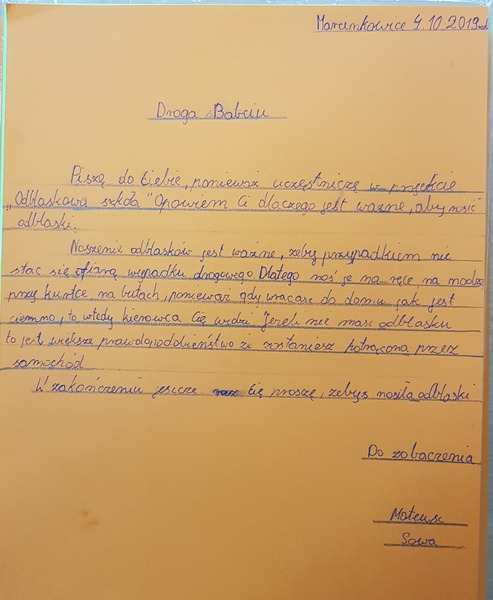 Marcinkowice 4.10.2019
Droga Babciu
Piszę do Ciebie, ponieważ uczęstniczę w projekcie
„Odblaskowa szkoła" Opowiem Ci dlaczego jest ważne, aby nosić
odblaski.
Noszenie odblasków jest ważne, żeby przypadkiem nie
stać się ofiarą wypadku drogowego. Dlatego noś je na ręce, na nodze
przy kurtce, na butach, ponieważ gdy wracasz do domu jak jest
ciemno, to wtedy kierowca Cię widzi. Jeżeli nie masz odblasku
to jest większe prawdopodobieństwo że zostaniesz potrącona przez
samochód.
W zakończeniu jeszcze Cię proszę, żebyś nosiła odblaski
Do zobaczenia
Mateusz
Sowa